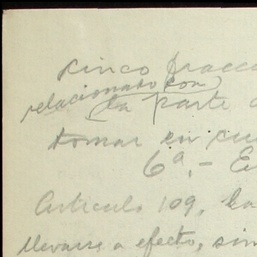 cinco fracc
relacionado con
la parte
tomar en cu
6ª.- E
Artículo 109, la
llevarse a efecto, sin